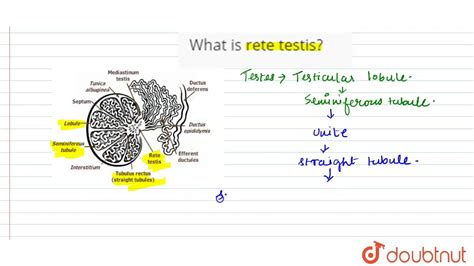 What is rete testis?
Mediastinum
testis
Tunica
albuginea
Septum
Lobule
Seminiferous
tubule
Interstitium
Tubulus rectus
(straight tubules)
Rete
testis
Efferent
ductules
Ductus
epididymis
Ductus
deferens
Testes → Testicular lobule.
↓
Seminiferous tubule.
↓
unite
↓
straight tubule.
↓
S.
doubtnut